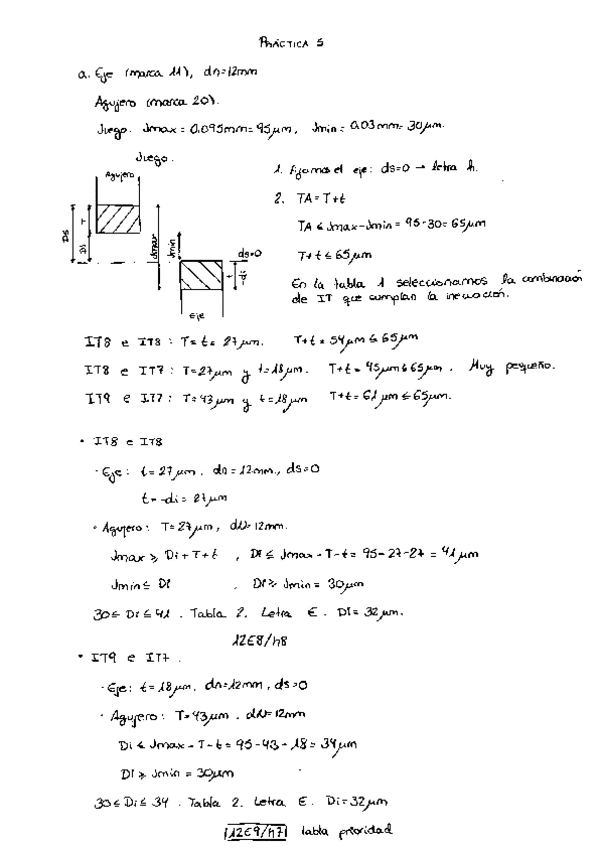 PRÁCTICA 5
a. Eje (marca 11), dn=12mm
Agujero (marca 20).
Juego. Jmax = 0.095mm = 95μm, Jmin = 0.03mm = 30μm.
Juego.
Agujero
T
Ds
Di
Jmax
Jmin
ds=0
t
di
Eje
1. Fijamos el eje: ds=0 → letra h.
2. TA = T+t
TA ≤ Jmax-Jmin = 95-30 = 65μm
T+t ≤ 65μm
En la tabla 1 seleccionamos la combinación
de IT que cumplan la inecuación.
IT8 e IT8 : T=t= 27μm. T+t = 54μm ≤ 65μm
IT8 e IT7 : T=27μm y t=18μm. T+t = 45μm ≤ 65μm. Muy pequeño.
IT9 e IT7 : T=43μm y t=18μm T+t = 61μm ≤ 65μm.
• IT8 e IT8
· Eje : t = 27μm. dn = 12mm., ds=0
t = -di = 27μm
• Agujero : T=27μm, dN=12mm.
Jmax ≥ Di + T + t , Di ≤ Jmax - T - t = 95-27-27 = 41μm
Jmin ≤ Di , Di ≥ Jmin = 30μm
30 ≤ Di ≤ 41 . Tabla 2. Letra E. Di = 32μm.
12E8/h8
• IT9 e IT7.
· Eje : t = 18μm, dn=12mm, ds=0
· Agujero : T=43μm. dN=12mm
Di ≤ Jmax - T - t = 95-43-18 = 34μm
Di ≥ Jmin = 30μm
30 ≤ Di ≤ 34 . Tabla 2. Letra E. Di=32μm
12E9/h7 tabla prioridad